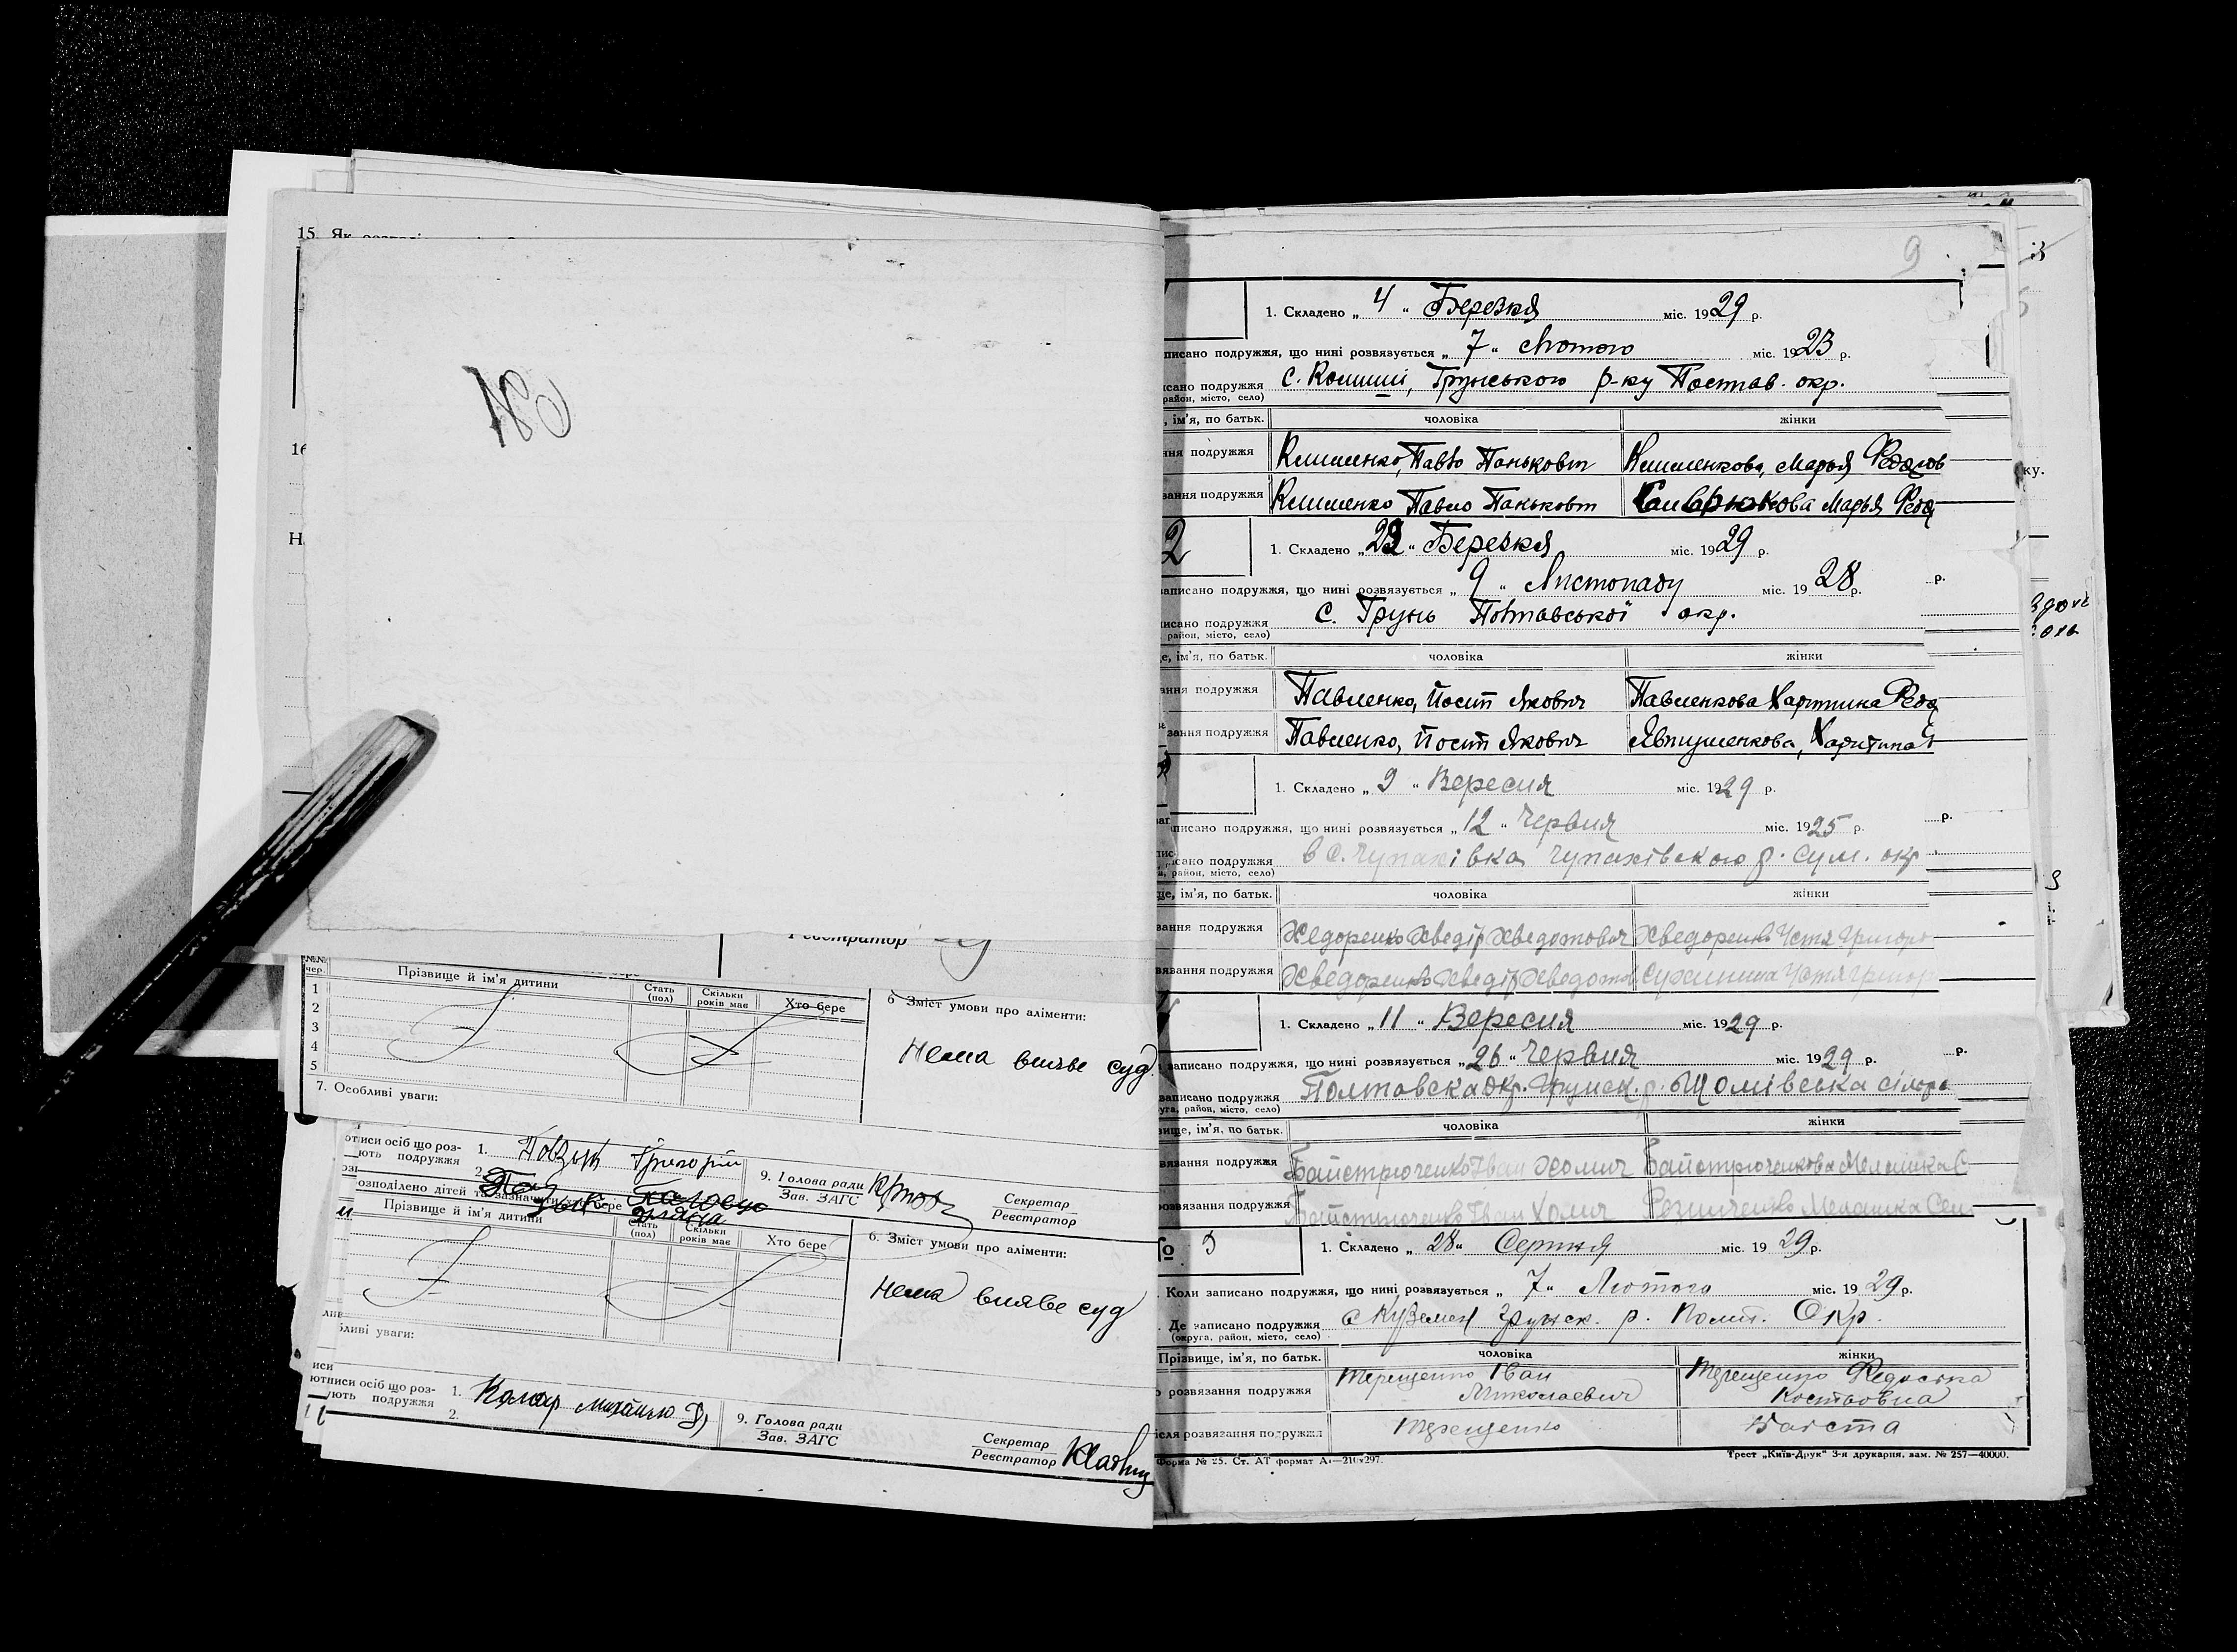 15. Як
16
Н
№
Реєстратор
№№ чер.
Прізвище й ім'я дитини
Стать (пол)
Скільки років має
Хто бере
6 Зміст умови про аліменти:
1
2
3
4
5
Нема вияве суд.
7. Особливі уваги:
писи осіб що роз-
ють подружжя
1. Повзик Григорій
2.
9. Голова ради
Зав. ЗАГС
Секретар
Реєстратор
озподілено дітей та зазначити хто бере
Прізвище й ім'я дитини
Стать (пол)
Скільки років має
Хто бере
6. Зміст умови про аліменти:
Нема вияве суд
бливі уваги:
писи осіб що роз-
ють подружжя
1. Коляр Михайло
2.
9. Голова ради
Зав. ЗАГС
Секретар
Реєстратор
9
1. Складено „ 4 “ Березня міс. 1929 р.
писано подружжя, що нині розвязується „ 7 “ Лютого міс. 1923 р.
исано подружжя с. Комиші, Грунського р-ку Полтав. окр.
район, місто, село)
, ім'я, по батьк. чоловіка жінки
ння подружжя Клименко, Павло Панькович Клименкова, Марья Федор
вання подружжя Клименко Павло Панькович Гаврюкова Марья Фед
2 1. Складено „ 22 “ Березня міс. 1929 р.
аписано подружжя, що нині розвязується „ 9 “ Листопаду міс. 19 28 р.
исано подружжя с. Грунь Полтавської окр.
район, місто, село)
е, ім'я, по батьк. чоловіка жінки
ання подружжя Павленко, Йосип Якович Павленкова Харитина Фед
зання подружжя Павленко, Йосип Якович Явтушенкова, Харитина
1. Складено „ 9 “ Вересня міс. 1929 р.
писано подружжя, що нині розвязується „ 12 “ Червня міс. 1925 р.
исано подружжя в с. Чупахівка Чупахівского р. Сум. окр
, район, місто, село)
ще, ім'я, по батьк. чоловіка жінки
вання подружжя Хведоренко Хведір Хведотович Хведоренко Устя Григоро
вязання подружжя Хведоренко Хведір Хведотов Сухинина Устя Григор
1. Складено „ 11 “ Вересня міс. 1929 р.
записано подружжя, що нині розвязується „ 26 “ Червня міс. 1929 р.
записано подружжя Полтавска Окр. Грунск. р. сільра
уга, район, місто, село)
вище, ім'я, по батьк. чоловіка жінки
вязання подружжя Байстрюченко Іван Хомич Байстрюченкова Мелашка С
озвязання подружжя Байстрюченко Іван Хомич Резниченко Мелашка Сем
№ 5 1. Складено „ 28 “ Серпня міс. 19 29 р.
Коли записано подружжя, що нині розвязується „ 7 “ Лютого міс. 19 29 р.
Де записано подружжя с Куземен Грунск. р. Полт. Окр.
(округа, район, місто, село)
Прізвище, ім'я, по батьк. чоловіка жінки
розвязання подружжя Терещенко Іван Миколаевич Терещенко Федоська Костьовна
ісля розвязання подружжя Терещенко
Форма № 25. Ст. АТ формат А₄—210×297. Трест „Київ-Друк“ 3-я друкарня. зам. № 257—40000.